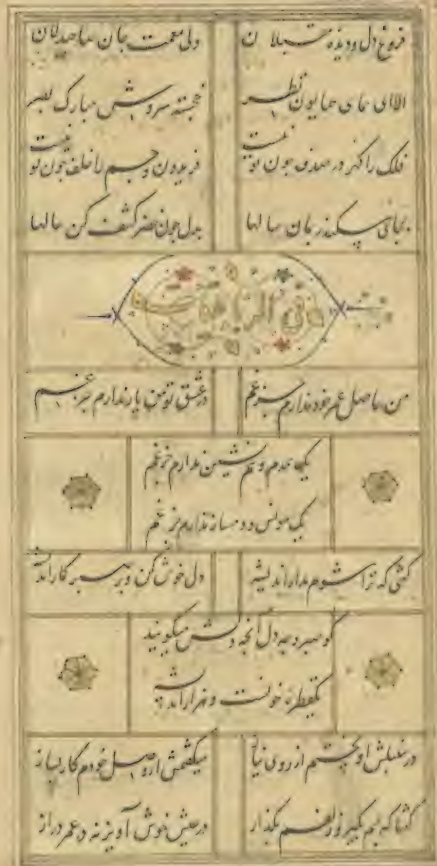 فروغ دل و دیده مقبلان
ولی نعمت جان صاحبدلان
الا ای همای همایون نظر
خجسته سروش مبارک خبر
فلک را گهر در صدف چون تو نیست
فریدون و جم را خلف چون تو نیست
بجای سکندر بمان سالها
بدل چون خضر کشف کن حالها
فی الرباعیات
من حاصل عمر خود ندارم جز غم
در عشق تو من یار ندارم جز غم
یک همدم و همنشین ندارم جز غم
یک مونس و دمساز ندارم جز غم
گفتی که ترا شوم مدار اندیشه
دل خوش کن و بر صبر گمار اندیشه
کو صبر و چه دل آنچه دلش میگویند
یکقطره خونست و هزار اندیشه
در سنبلش آویختم از روی نیاز
میگفتمش از وصل خودم کار بساز
گفتا که لبم بگیر و زلفم بگذار
در عیش خوش آویز نه در عمر دراز